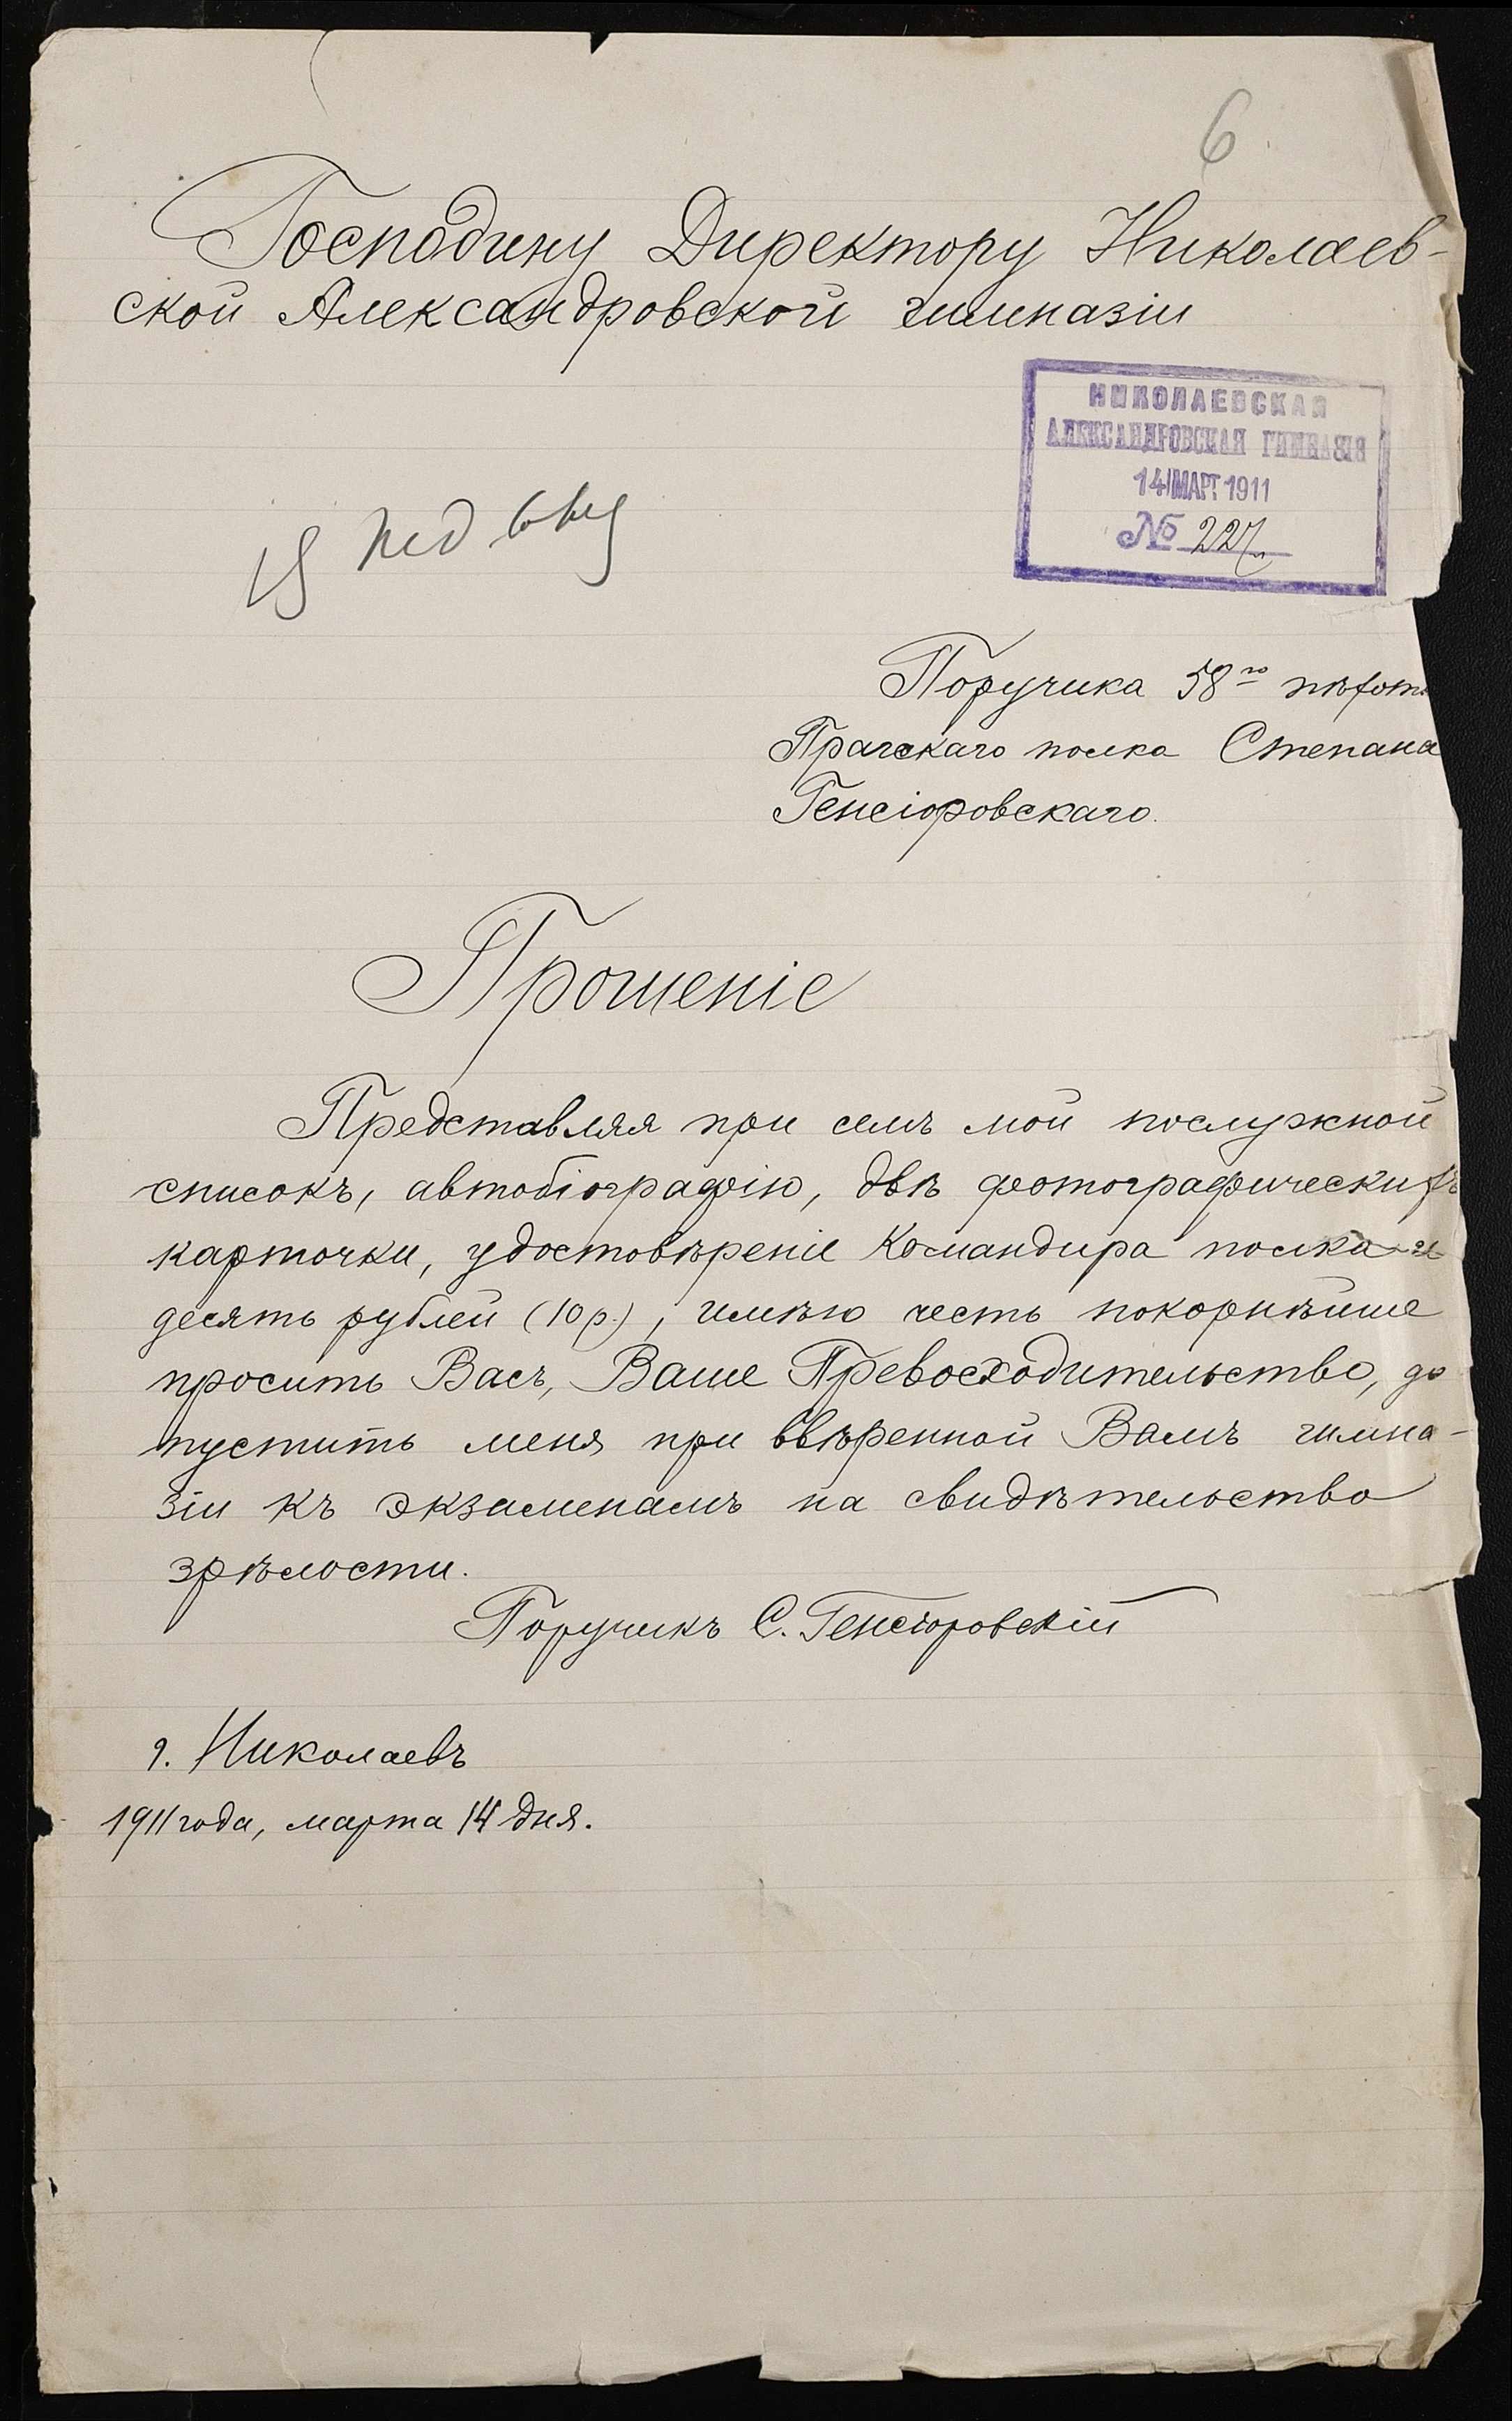 6
Господину Директору Николаев-
ской Александровской гимназіи
НИКОЛАЕВСКАЯ
АЛЕКСАНДРОВСКАЯ ГИМНАЗІЯ
14 МАРТ 1911
№ 227
Поручика 58го пѣхотн
Прагскаго полка Степана
Генсіоровскаго.
Прошеніе
Представляя при семъ мой послужной
списокъ, автобіографію, двѣ фотографическихъ
карточки, удостовѣреніе Командира полка и
десять рублей (10 р.), имѣю честь покорнѣйше
просить Васъ, Ваше Превосходительство, до
пустить меня при ввѣренной Вамъ гимна-
зіи къ экзаменамъ на свидѣтельство
зрѣлости.
Поручикъ С. Генсіоровскій
г. Николаевъ
1911 года, марта 14 дня.